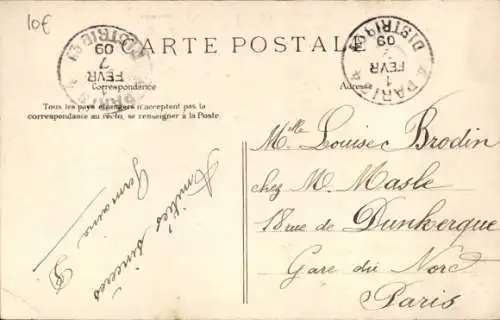 10€
CARTE POSTALE
PARIS DISTRIBON
1 FEVR 09
PARIS DISTRIBON
7 FEVR 09
Correspondance
Adresse
Tous les pays étrangers n'acceptent pas la
correspondance au recto, se renseigner à la Poste
Amitiés sincères
Germaine
Mlle Louise Brodin
chez M. Masle
18 rue de Dunkerque
Gare du Nord
Paris